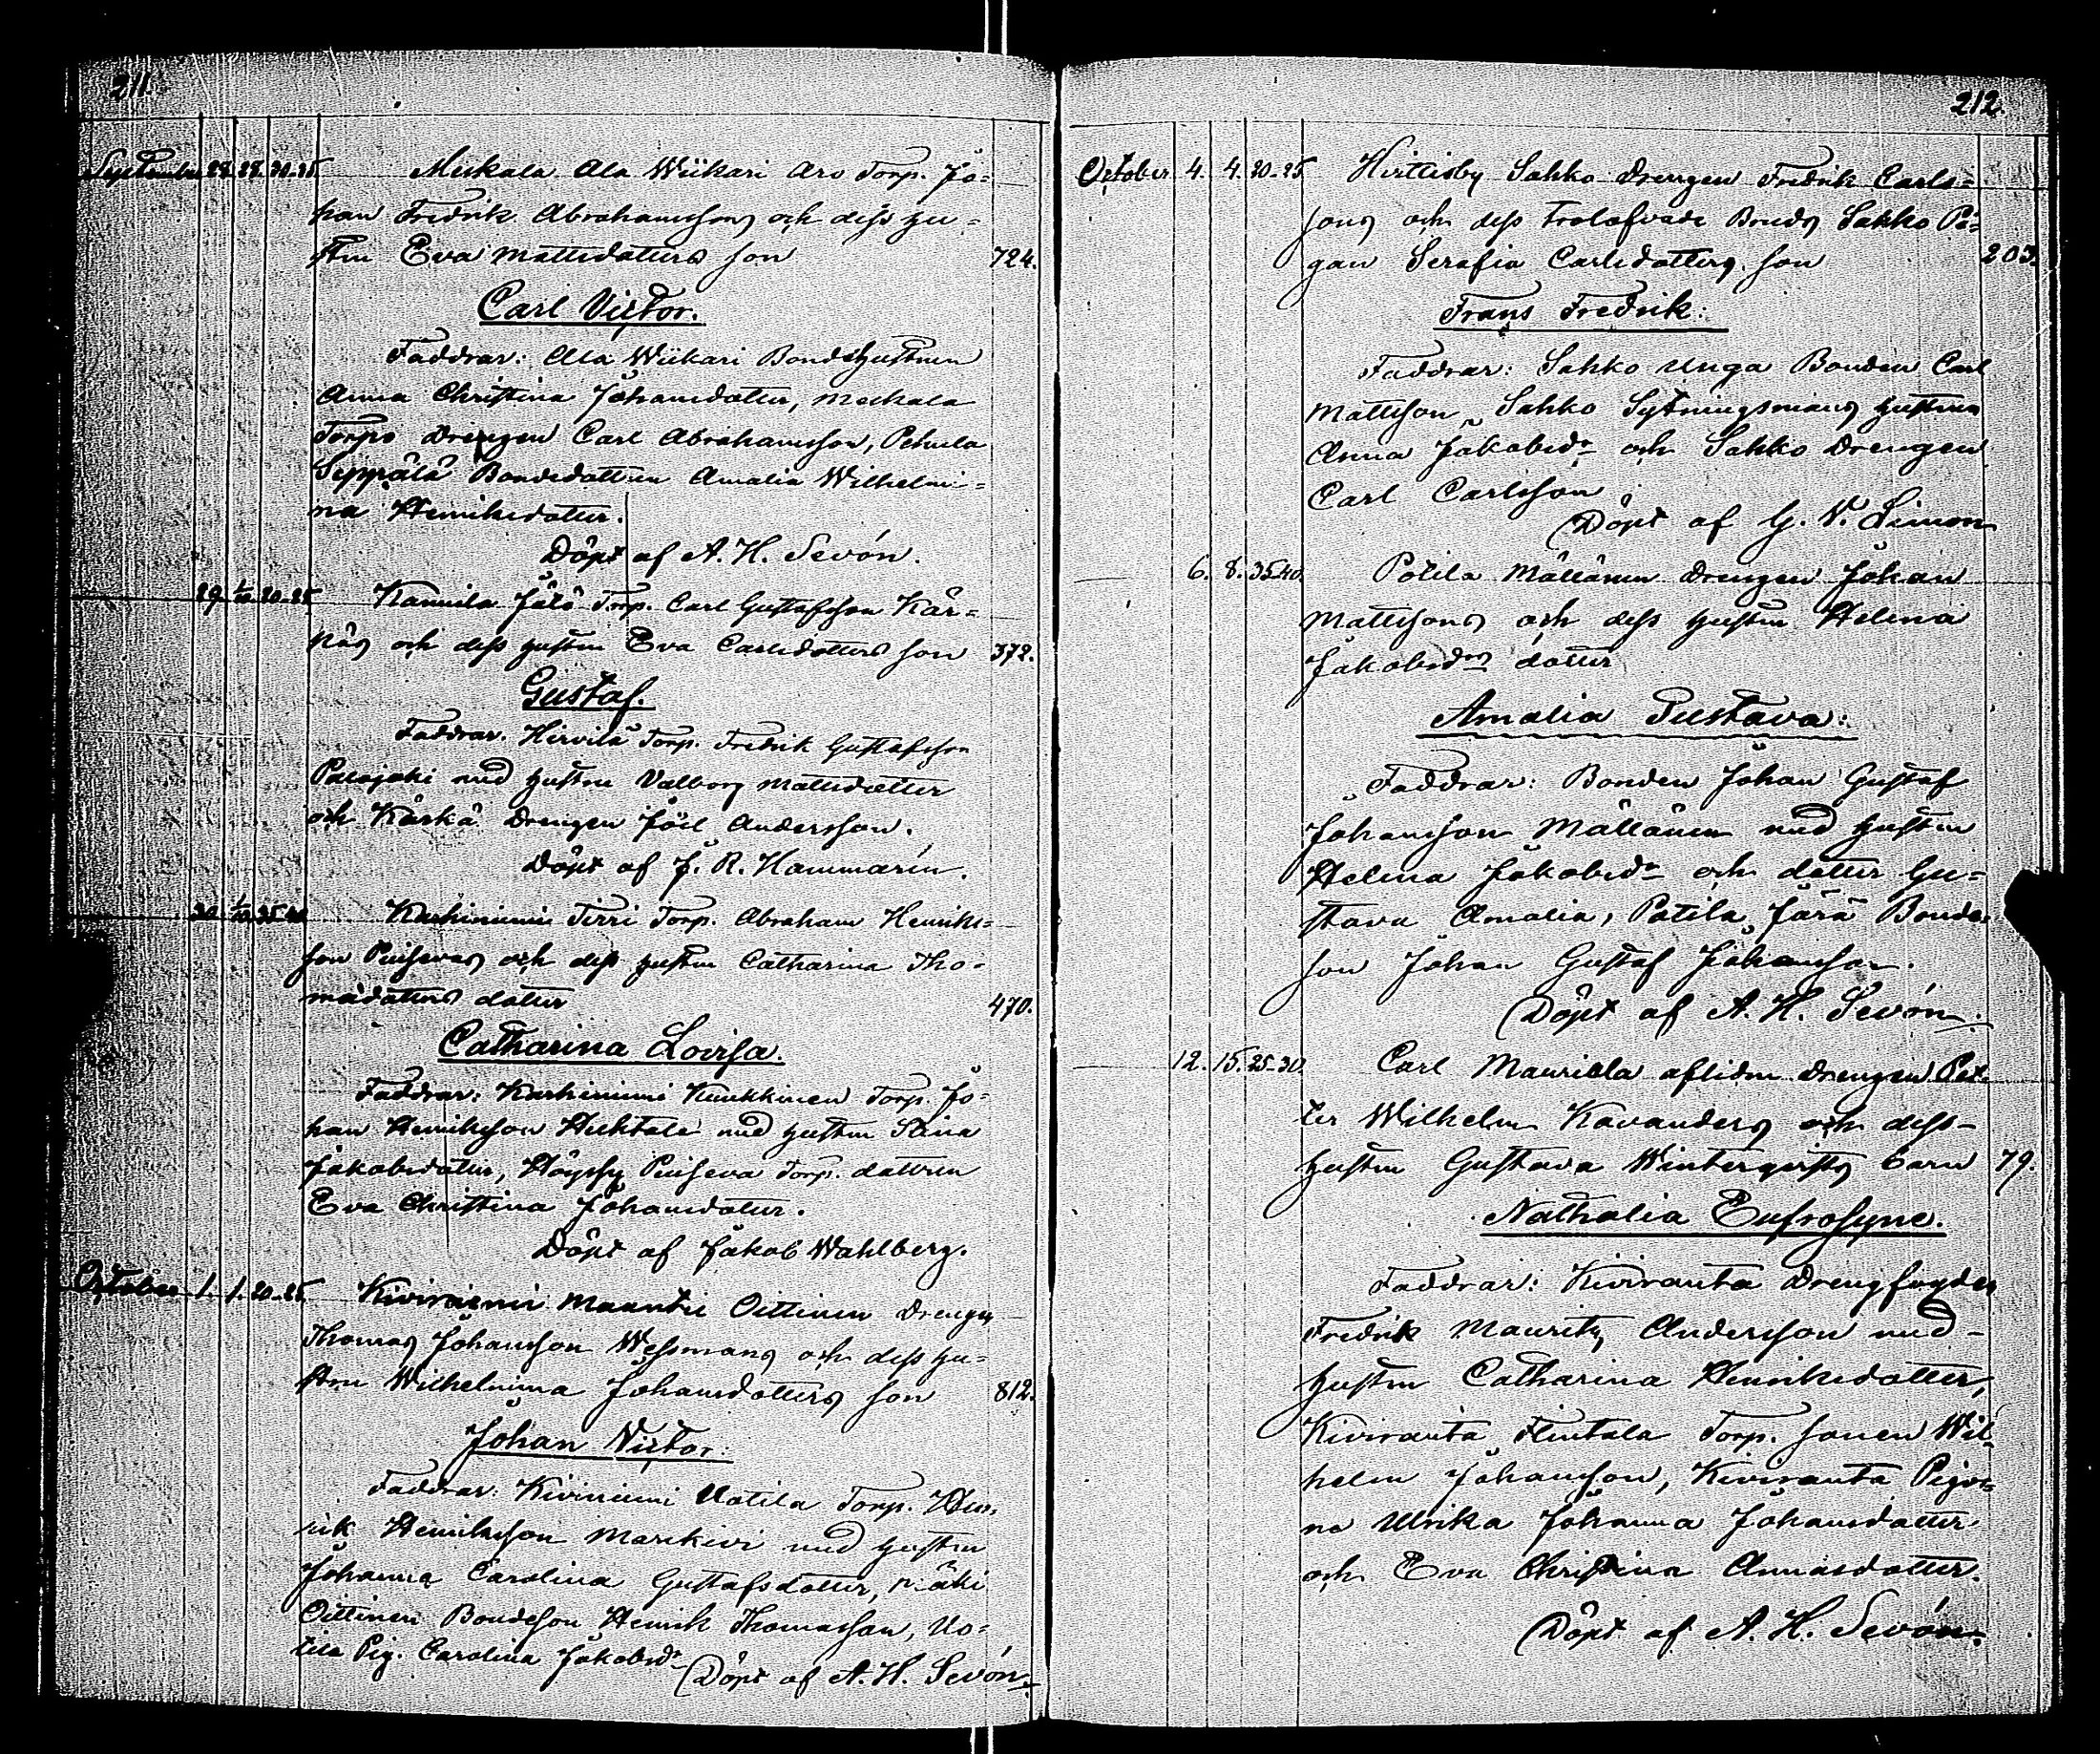 211.
September 28. 29. 30-35. Meskala Ala Wiikari Aro Torp. Jo=
han Fredrik Abrahamssons och dess hu=
stru Eva Mattsdotters son 724.
Carl Victor.
Faddrar: Ala Wiikari Bondehustrun
Anna Christina Johansdotter, Meskala
Torps Drengen Carl Abrahamsson, Pehula
Seppälä Bondedottren Amalia Wilhelmi=
na Henriksdotter.
Döpt af A. H. Sevón.
29. 1/10 20-25 Kannila Jälö Torp. Carl Gustafsson Kär=
näs och dess hustru Eva Carlsdotters son 372.
Gustaf.
Faddrar. Hirvilä Torp. Fredrik Gustafsson
Palojoki med hustru Valborg Mattsdotter
och Kärkä Drengen Joel Andersson.
Döpt af J. R. Hammarén.
30. 1/10 35-40 Karhiniemi Terri Torp. Abraham Henriks=
son och dess hustru Catharina Tho=
madotters dotter 470.
Catharina Lovisa.
Faddrar: Karhiniemi Kuukkinen Torp. Jo=
han Henriksson Huhtala med hustru Stina
Jakobsdotter, Torp. dottren
Eva Christina Johansdotter.
Döpt af Jakob Wahlberg.
October 1. 1. 20-25. Kiviniemi Oittinen Dreng
Thomas Johansson Wessmans och dess hu=
stru Wilhelmina Johansdotters son 812.
Johan Victor:
Faddrar: Kiviniemi Uotila Torp. Hen=
rik Henriksson Marekivi med hustru
Johanna Carolina Gustafsdotter, Mäki
Oittinen Bondeson Henrik Thomasson, Uo=
tila Pig. Carolina Jakobsdr
Döpt af A. H. Sevón.
212.
October 4. 4. 20-25 Hirttisby Sahko Drengen Fredrik Carls=
sons och dess trolofvade Bruds Sahko Pi=
gan Serafia Carlsdotters son 203.
Frans Fredrik:
Faddrar: Sahko Unga Bonden Carl
Mattsson, Sahko Sytningsmans hustrun
Anna Jakobsdr och Sahko Drengen
Carl Carlsson
Döpt af G. V. Limon
6. 8. 35-40. Potila Mällänen Drengen Johan
Mattssons och dess hustru Helena
Jakobsdrs dotter
Amalia Gustava:
Faddrar: Bonden Johan Gustaf
Johansson Mällänen med hustru
Helena Jakobsdr och dotter Gu=
stava Amalia, Potila Järä Bonde=
son Johan Gustaf Johansson.
Döpt af A. H. Sevón.
12. 15. 25-30 Carl Maurilla aflidne Drengen Pet=
ter Wilhelm Kavanders och dess
hustru Gustava Winterqvists barn 79.
Nathalia Eufrosyne.
Faddrar: Kiviranta Drengfogden
Fredrik Mauritz Andersson med
hustru Catharina Henriksdotter,
Kiviranta Torp. sonen Wil=
helm Johansson, Kiviranta Pigor=
na Ulrika Johanna Johansdotter
och Eva Christina Annasdotter.
Döpt af A. H. Sevón.